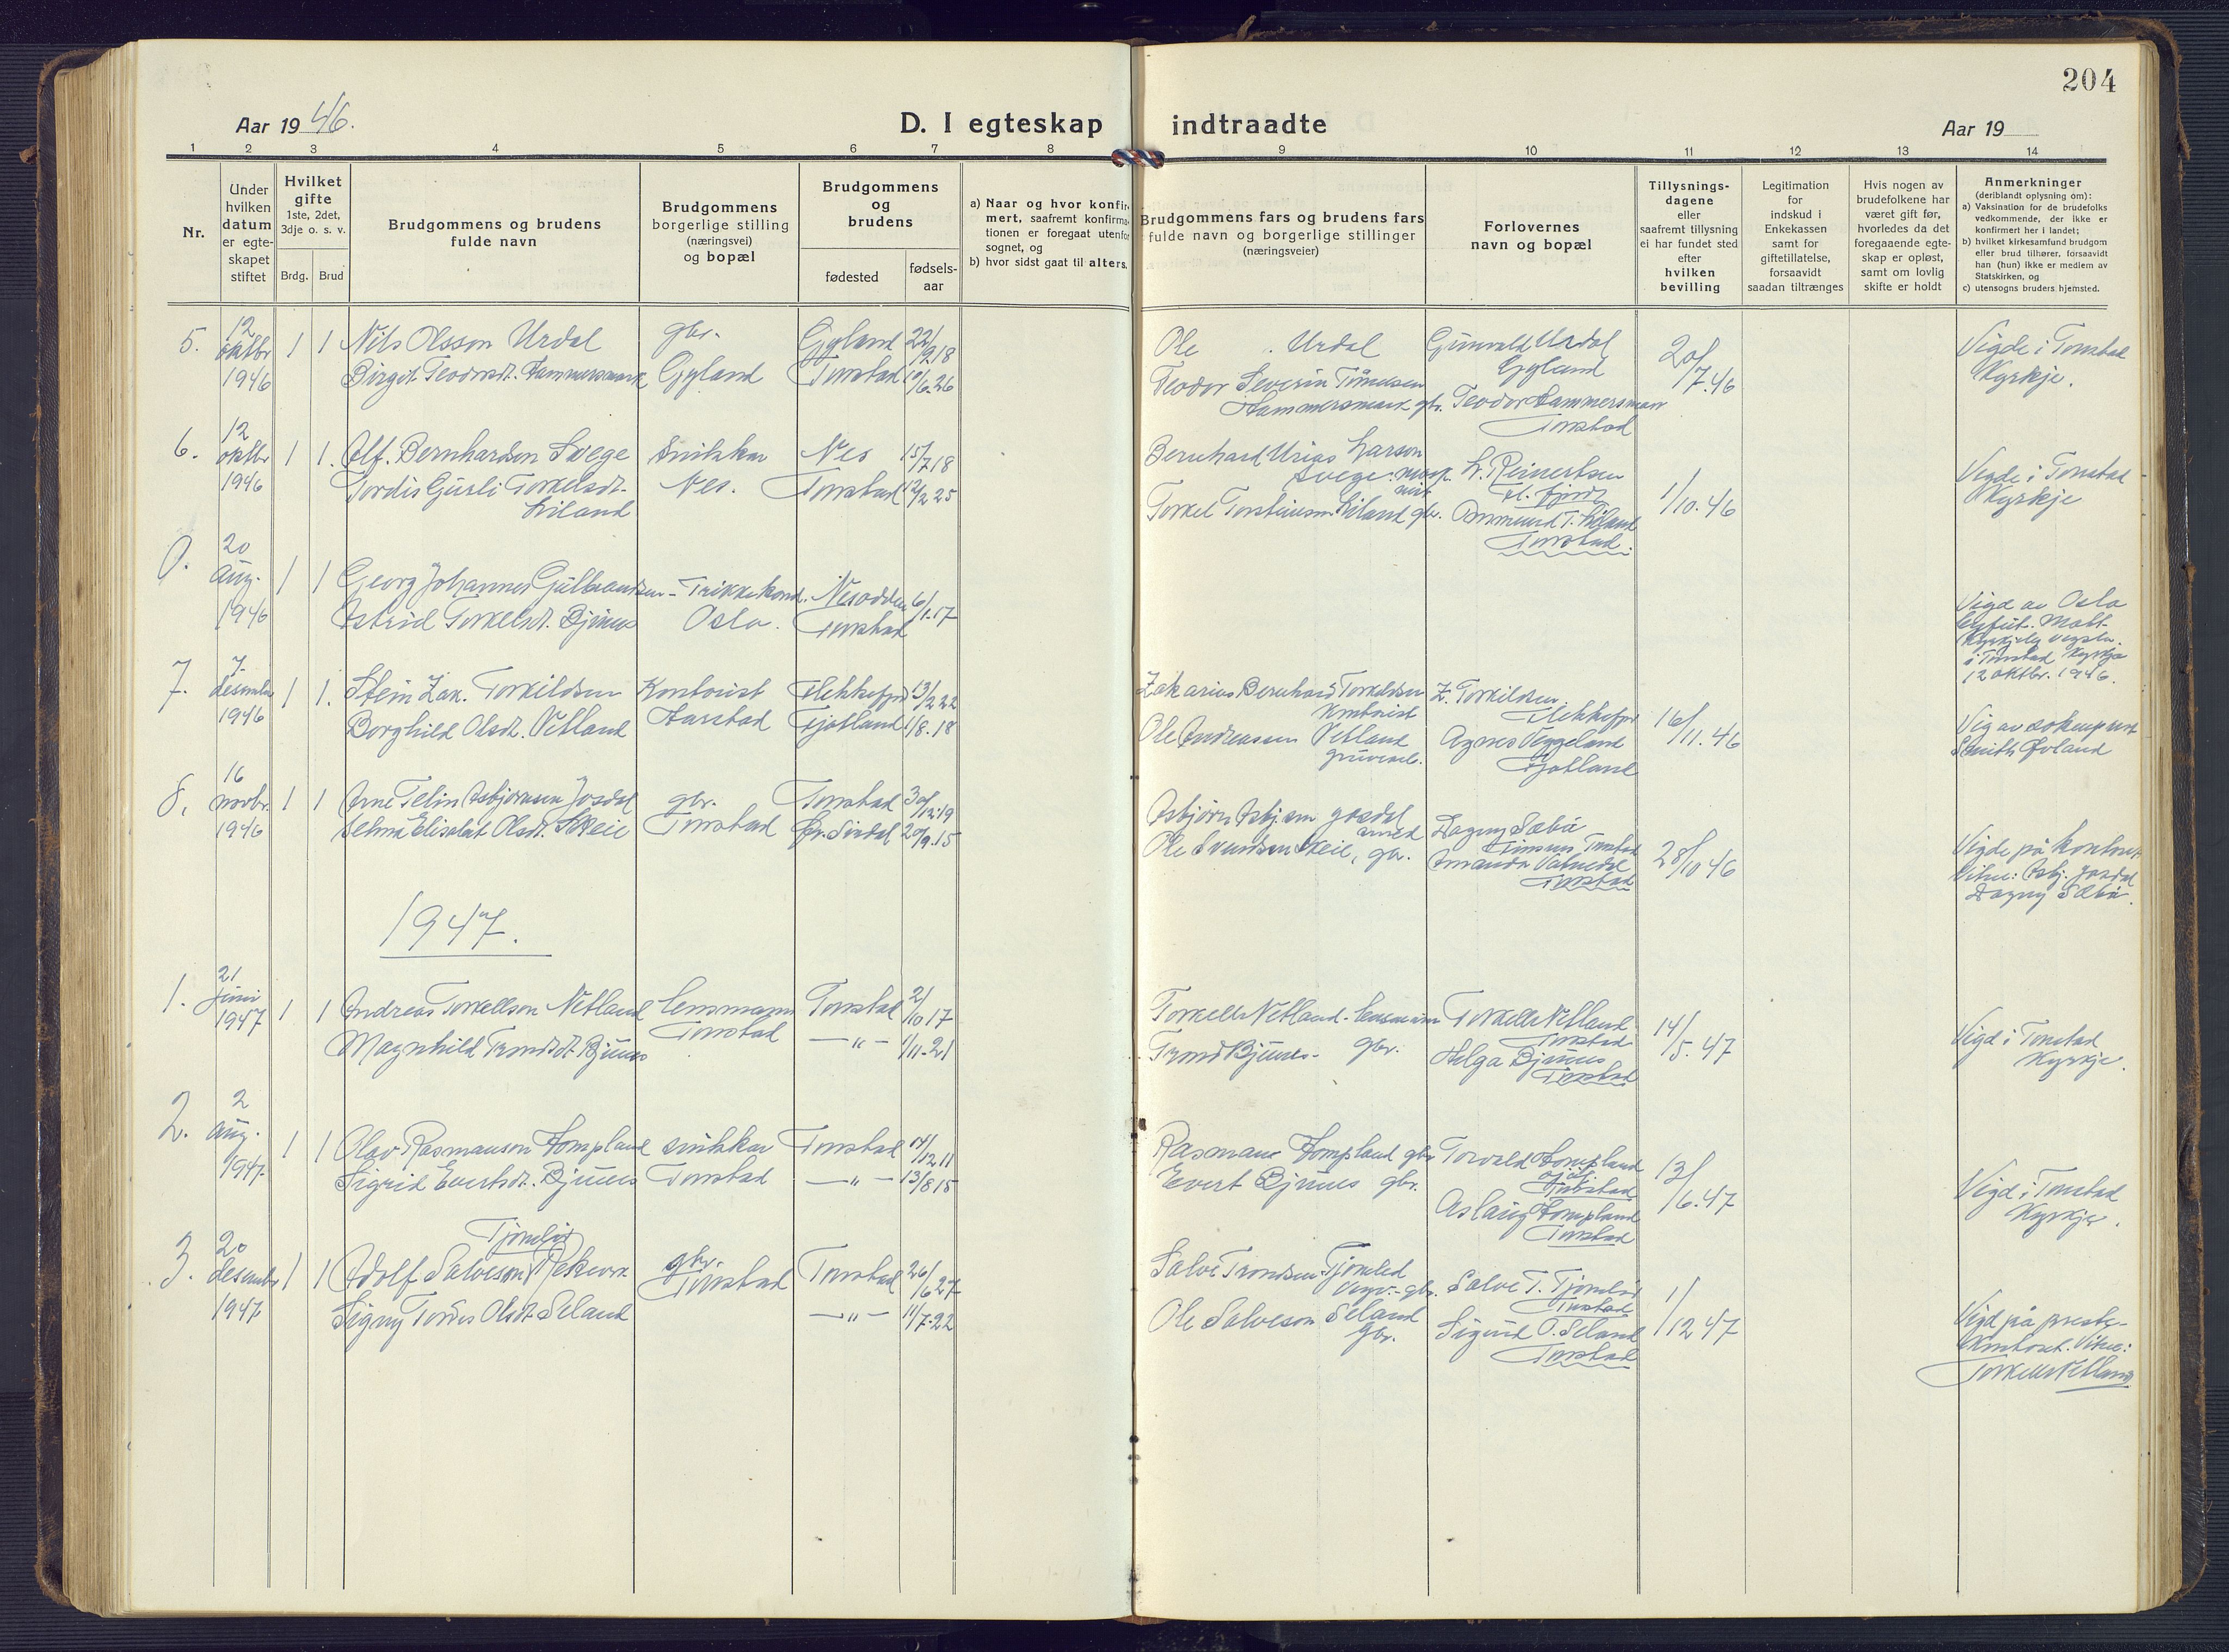 204
Aar 19 46.
D. I egteskap indtraadte
Aar 19
1 2 3 4 5 6 7 8 9 10 11 12 13 14
Nr.
Under hvilken datum er egte-skapet stiftet
Hvilket gifte
1ste, 2det, 3dje o. s. v.
Brdg. Brud
Brudgommens og brudens fulde navn
Brudgommens borgerlige stilling (næringsvei) og bopæl
Brudgommens og brudens
fødested
fødsels-aar
a) Naar og hvor konfir-mert, saafremt konfirma-tionen er foregaat utenfor sognet, og
b) hvor sidst gaat til alters.
Brudgommens fars og brudens fars fulde navn og borgerlige stillinger (næringsveier)
Forlovernes navn og bopæl
Tillysnings-dagene eller saafremt tillysning ei har fundet sted efter hvilken bevilling
Legitimation for indskud i Enkekassen samt for giftetillatelse, forsaavidt saadan tiltrænges
Hvis nogen av brudefolkene har været gift før, hvorledes da det foregaaende egte-skap er opløst, samt om lovlig skifte er holdt
Anmerkninger (deriblandt oplysning om):
a) Vaksination for de brudefolks vedkommende, der ikke er konfirmert her i landet;
b) hvilket kirkesamfund brudgom eller brud tilhører, forsaavidt han (hun) ikke er medlem av Statskirken, og
c) utensogns bruders hjemsted.
5. 12 oktbr 1946 1 1 Nils Olsson Urdal gbr. Gyland Gyland 22/9.18
Birgit Teodorsdt. Hammersmark Tonstad 10/6.26
Ole Urdal Gunvald Urdal Gyland 20/7.46 Vigde i Tonstad Kyrkje.
Teodor Severin Tønnesen Hammersmark gbr. Teodor Hammersmark Tonstad
6. 12 oktbr 1946 1 1. Alf. Bernhardsen Svege Snikkar Nes. Nes 15/7 18
Tordis Gusli Torkelsdt. Liland Tonstad 12/2 25
Bernhard Urias Larson Svege L. Reinertsen 1/10.46 Vigde i Tonstad Kyrkje
Torkel Liland gbr. Liland Tonstad.
0. 20 aug. 1946 1 1 Georg Johannes Gulbrandsen Trikkekond. Oslo. Nesodden 6/1.17
Astrid Torkelsdt. Bjunes Tonstad
Vigd av Oslo
i Tonstad Kyrkje
12 oktbr. 1946.
7. 7. desember 1946 1 1. Stein Zak. Torkildsen Kontorist Harstad Flekkefjord 13/2 22
Borghild Olsdt. Vetland Fjotland 1/8.18
Zakarias Bernhard Torkildsen Kontorist Z. Torkildsen Flekkefjord 16/11.46
Ole Andreassen Vetland Agnes Veggeland Fjotland
Vig av sokneprest Smith Øvland
8. 16 novbr. 1946 1 1 Arne Telin Asbjørnsen Josdal gbr. Tonstad Tonstad 30/12.19
Selma Elisabet Olsdt. Skeie Øv. Sirdal 20/9.15
Asbjørn Asbj.sen Josdal Dagny Sæbø Tonstad 28/10 46
Ole Svendsen Skeie, gbr. Amanda Tonstad
Vigde på kontoret
Vitne: Asbj. Josdal
Dagny Sæbø.
1947.
1. 21 juni 1947 1 1 Andreas Torkellson Netland lensmann Tonstad Tonstad 2/10 17
Magnhild Trondsdt. Bjunes — " — 1/11.21
Torkell Netland - lensmann Torkell Netland Tonstad 14/5.47 Vigd i Tonstad Kyrkje.
Trond Bjunes - gbr. Helga Bjunes Tonstad
2. 2 aug. 1947 1 1 Olav Rasmusson Hompland snikkar Tonstad Tonstad 11/12 11
Sigrid Evertsdt. Bjunes — " — 13/8 18
Rasmus Hompland gbr Torvald Hompland Tonstad 13/6.47 Vigd i Tonstad Kyrkje.
Evert Bjunes gbr. Aslaug Hompland Tonstad
3. 20 desember 1947 1 1 Adolf Salveson Tjomlid gbr. Tonstad Tonstad 26/6 27
Signy Tordis Olsdt. Seland — " — 11/7.22
Salve Trondsen Tjomlid gbr. Salve T. Tjomlid Tonstad 1/12 47
Ole Salveson Seland gbr. Sigurd O. Seland Tonstad
Vigd på preste-kontoret. Vitne:
Torkell Netland